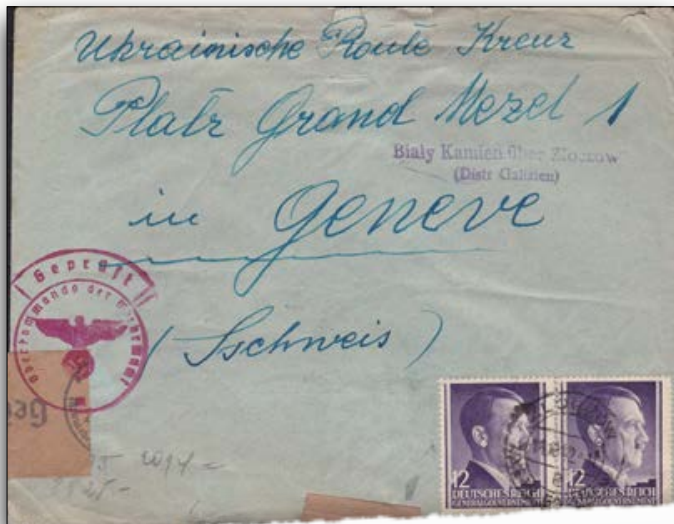 Ukrainische Route Kreuz
Platz Grand Mezel 1
Bialy Kamien über Zloczow
(Distr Galizien)
in Geneve
(Sschweis)
Geprüft
Oberkommando der Wehrmacht
Geö
12
DEUTSCHES REICH
GENERALGOUVERNEMENT
12
DEUTSCHES REICH
GENERALGOUVERNEMENT